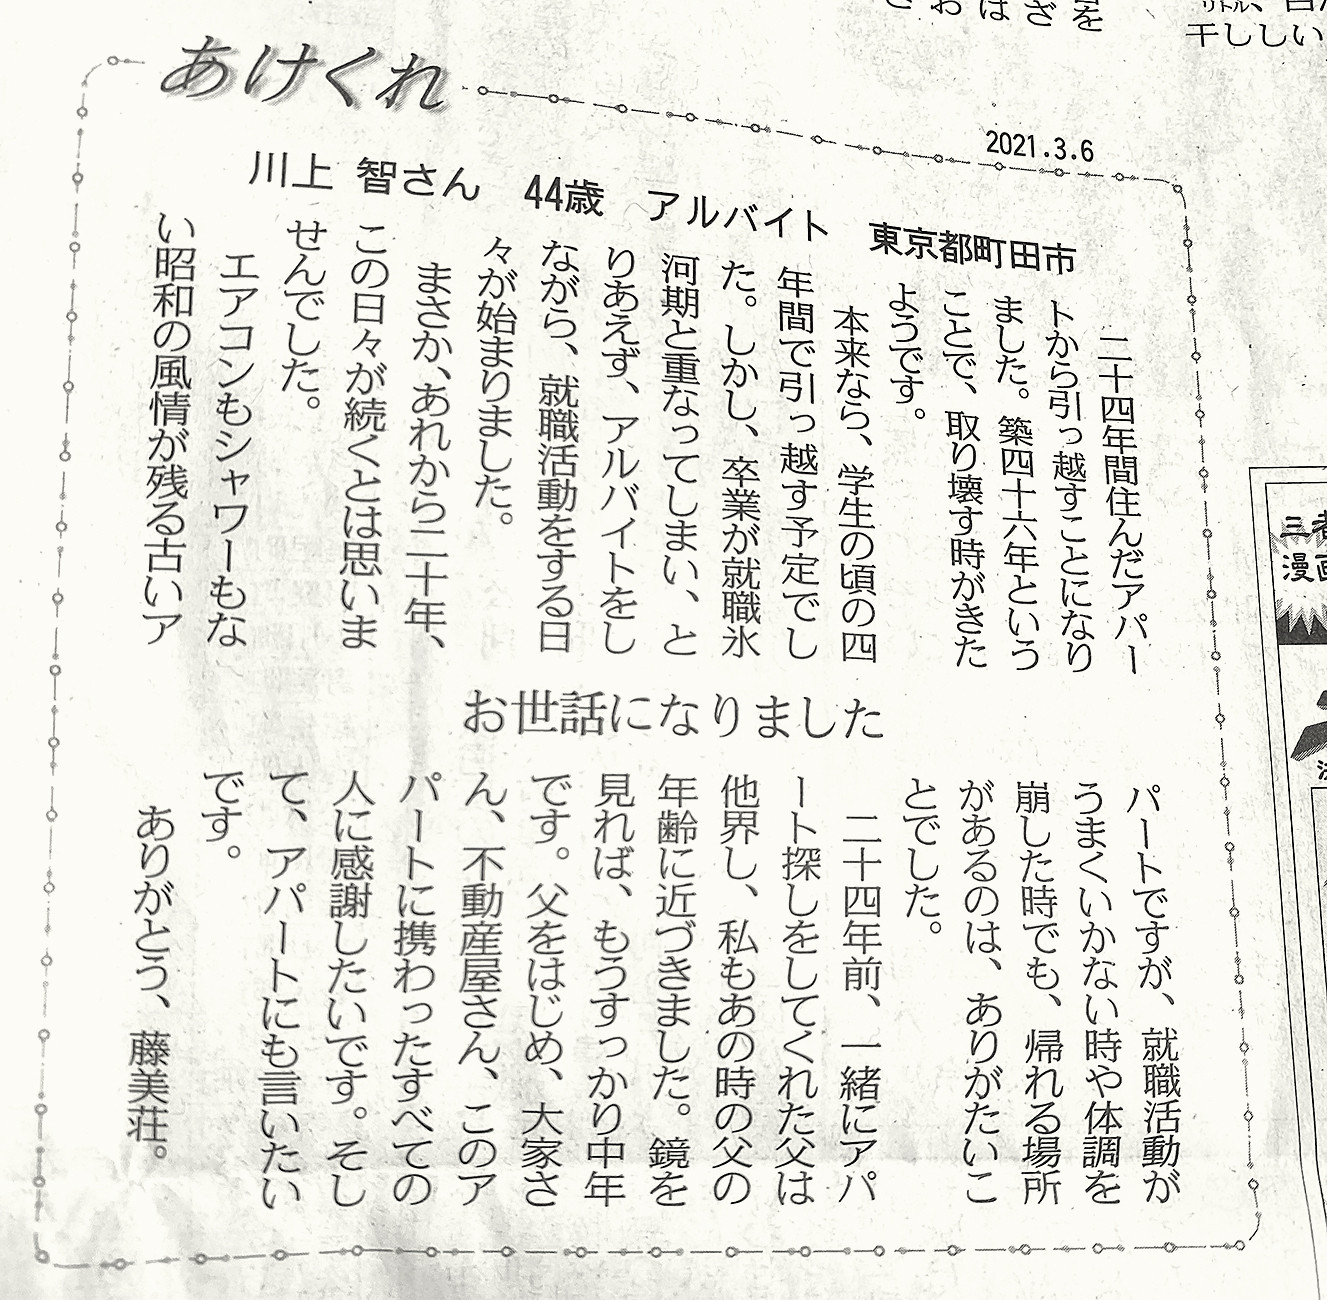 あけくれ
2021.3.6
川上 智さん 44歳 アルバイト 東京都町田市
お世話になりました
二十四年間住んだアパー
トから引っ越すことになり
ました。築四十六年という
ことで、取り壊す時がきた
ようです。
本来なら、学生の頃の四
年間で引っ越す予定でし
た。しかし、卒業が就職氷
河期と重なってしまい、と
りあえず、アルバイトをし
ながら、就職活動をする日
々が始まりました。
まさか、あれから二十年、
この日々が続くとは思いま
せんでした。
エアコンもシャワーもな
い昭和の風情が残る古いア
パートですが、就職活動が
うまくいかない時や体調を
崩した時でも、帰れる場所
があるのは、ありがたいこ
とでした。
二十四年前、一緒にアパ
ート探しをしてくれた父は
他界し、私もあの時の父の
年齢に近づきました。鏡を
見れば、もうすっかり中年
です。父をはじめ、大家さ
ん、不動産屋さん、このア
パートに携わったすべての
人に感謝したいです。そし
て、アパートにも言いたい
です。
ありがとう、藤美荘。
干ししい